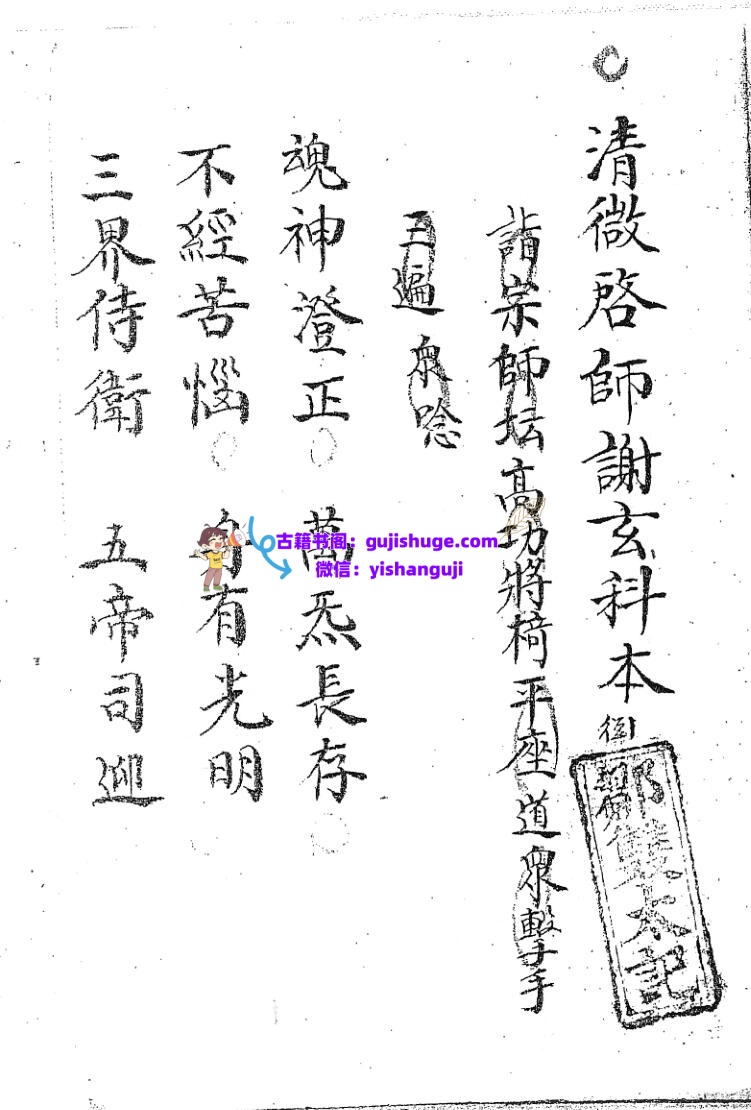 清微啓師謝玄科本
詣宗師坛高功將椅平座道衆擊手
三遍衆唸
魂神澄正 萬炁長存
不經苦惱 身有光明
三界侍衛 五帝司迎
太記
古籍书阁：gujishuge.com
微信：yishanguji